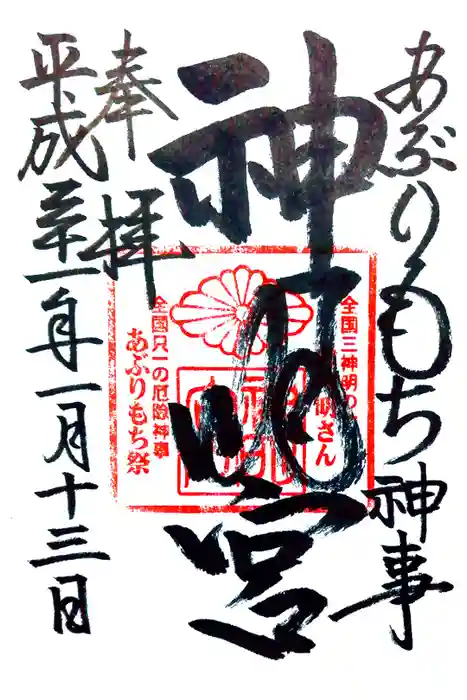 あぶりもち神事
神明宮
奉拝
平成三十一年一月十三日
全国三神明の
明さん
全國只一の厄除神事
あぶりもち祭